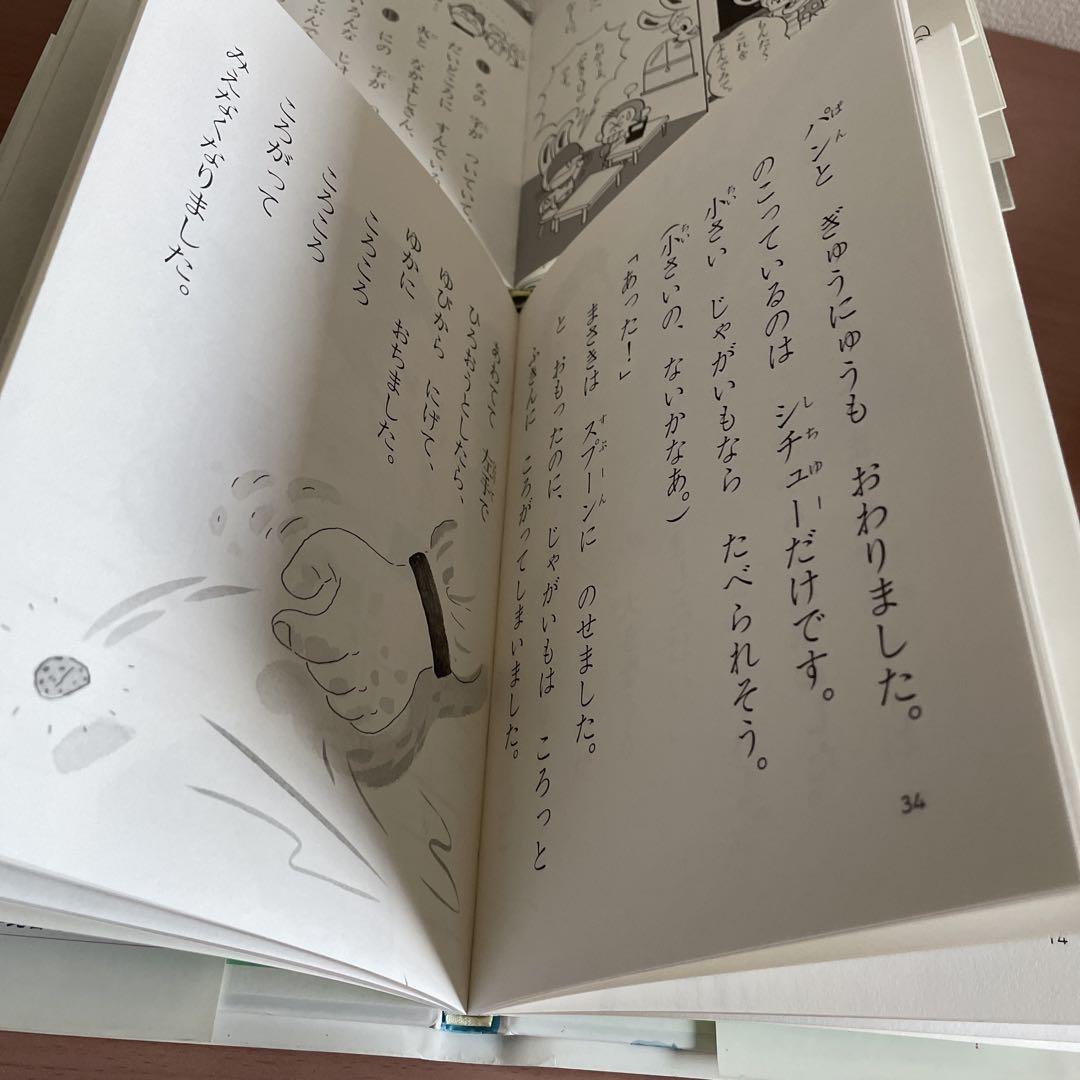 パンと ぎゅうにゅうも おわりました。
のこっているのは シチューだけです。
小さい じゃがいもなら たべられそう。
（小さいの、ないかなあ。）
「あった！」
まさきは スプーンに のせました。
と おもったのに、じゃがいもは ころっと
ふきんに ころがってしまいました。
34
あわてて
ひろおうとしたら、
ゆびから にげて、
ゆかに おちました。
ころころ
ころころ
ころがって
みえなくなりました。
なの 字が ついていて
だいどころに すんでいる
水と なかよしさん。
にの 字が
いろんな
14